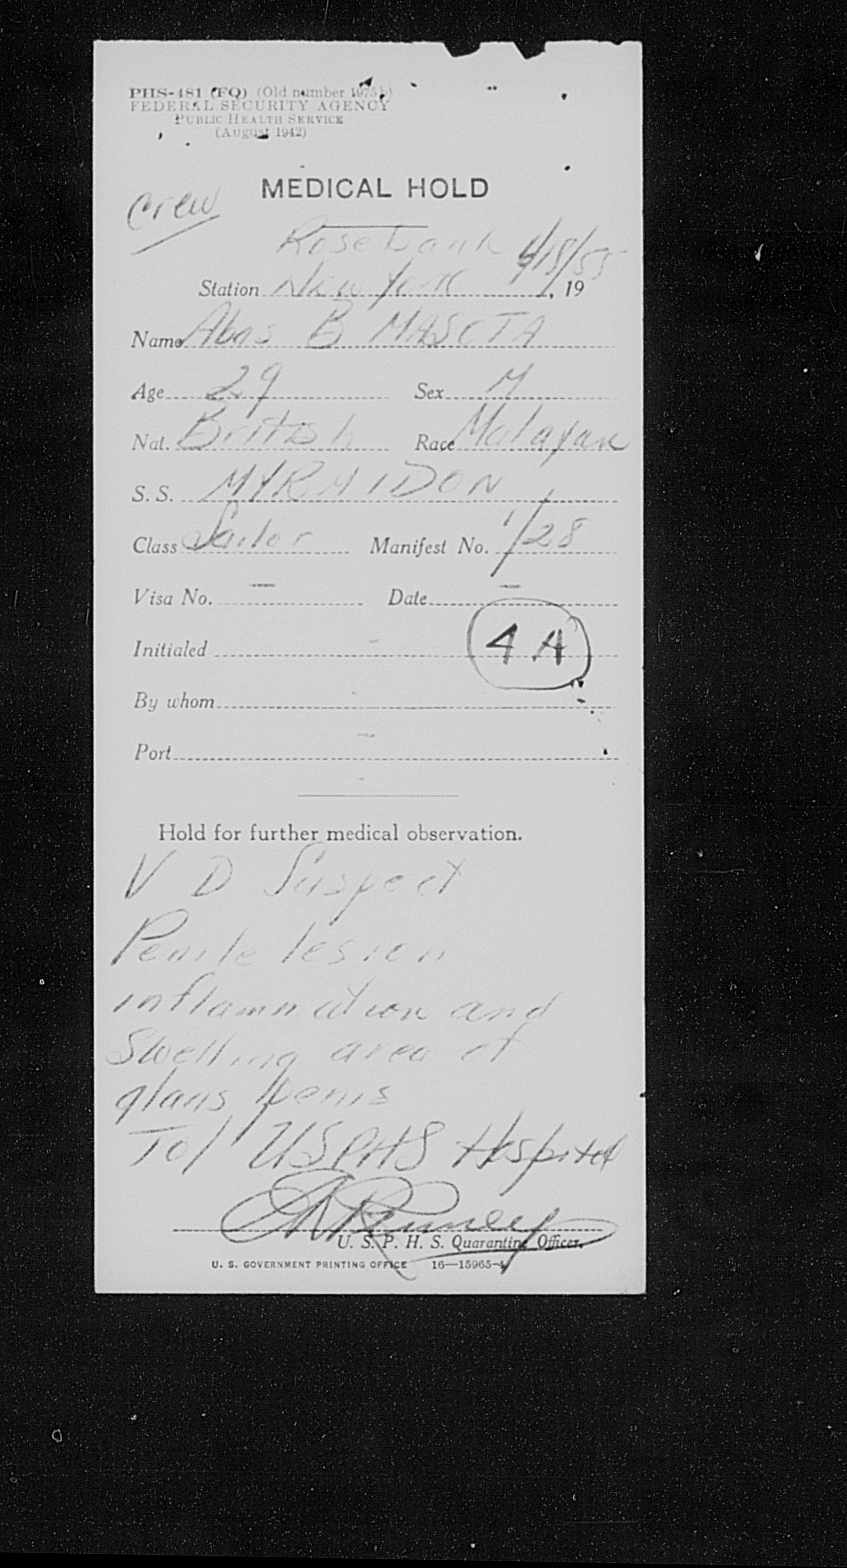 PHS-481 (FQ) (Old number 1975)
FEDERAL SECURITY AGENCY
PUBLIC HEALTH SERVICE
(August 1942)
MEDICAL HOLD
Crew
Rosebank 4/18/55
Station New York, 19
Name Abas B MASOTA
Age 29 Sex M
Nat. British Race Malayan
S. S. MYRMIDON
Class Sailor Manifest No. 1/28
Visa No. — Date —
4 A
Initialed -
By whom -
Port -
Hold for further medical observation.
V D Suspect
Penile lesion
inflammation and
Swelling area of
glans penis
To/ USPHS Hospital
U. S. P. H. S. Quarantine Officer.
U. S. GOVERNMENT PRINTING OFFICE 16—15965-1